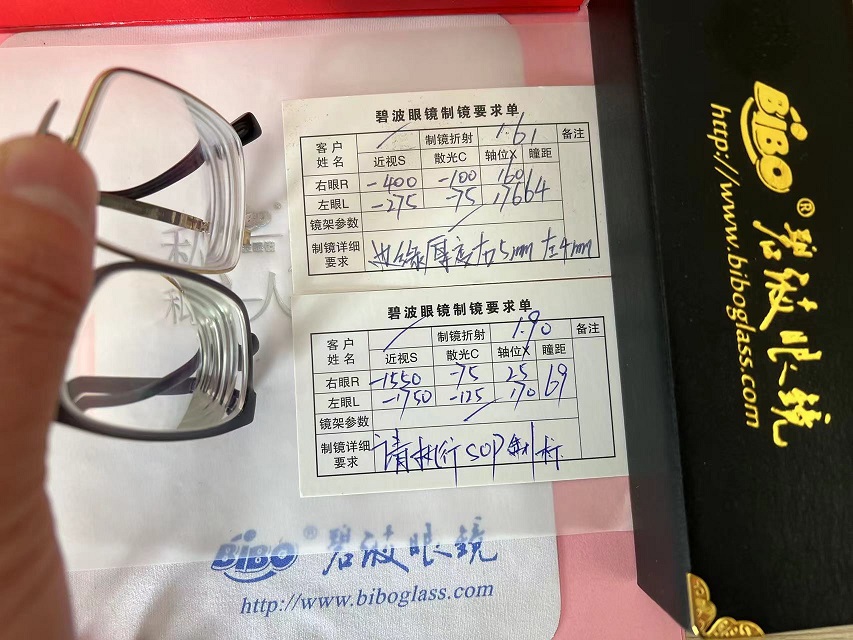 碧波眼镜制镜要求单
客户姓名 制镜折射 1.61 备注
近视S 散光C 轴位X 瞳距
右眼R -400 -100 160
左眼L -275 -75 176 64
镜架参数
制镜详细要求 边缘厚度右5mm 左4mm
碧波眼镜制镜要求单
客户姓名 制镜折射 1.90 备注
近视S 散光C 轴位X 瞳距
右眼R -1550 -75 25 69
左眼L -1750 -125 170
镜架参数
制镜详细要求 请执行SOP制标
BiBO® 碧波眼镜
http://www.biboglass.com
BiBO® 碧波眼镜
http://www.biboglass.com